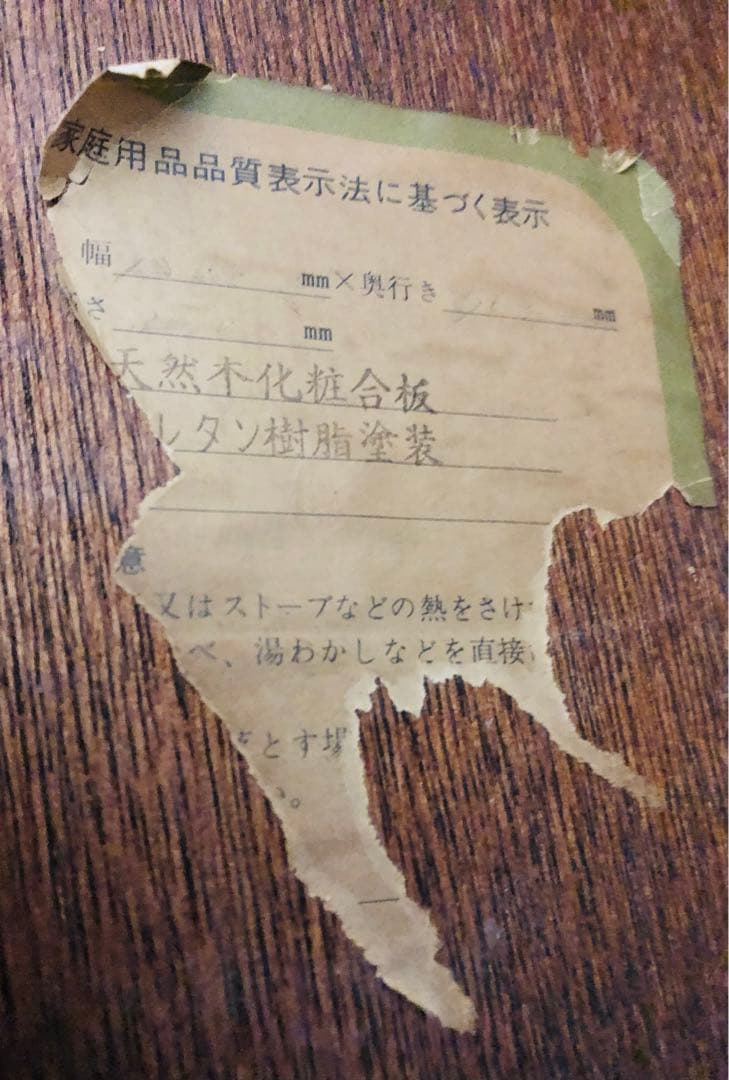 家庭用品品質表示法に基づく表示
幅 mm×奥行き mm
さ mm
天然木化粧合板
レタン樹脂塗装
意
又はストーブなどの熱をさけ
べ、湯わかしなどを直接
とす場
い。